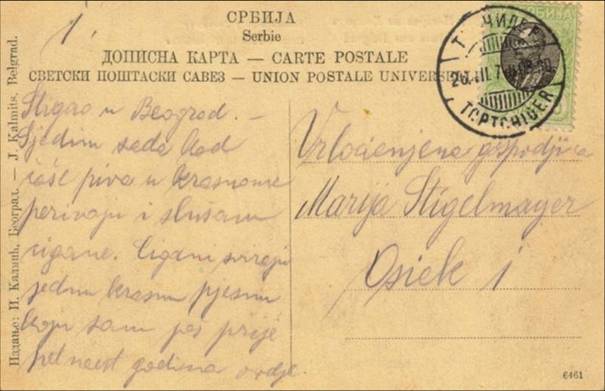 1.
СРБИЈА
Serbie
ДОПИСНА КАРТА — CARTE POSTALE
СВЕТСКИ ПОШТАСКИ САВЕЗ - UNION POSTALE UNIVERSE
TOPTCHIDER
Stigao u Beograd. —
Sjedim sada kod
čaše piva u krasnome
perivoju i slušam
cigane. Cigani sviraju
jednu krasnu pjesmu
koju sam još prije
petnaest godina ovdje
Vrlocienjena gospodjica
Marija Stigelmayer
Osiek I
Издање: П. Калмић, Београд. — J. Kalmits, Belgrad.
6461